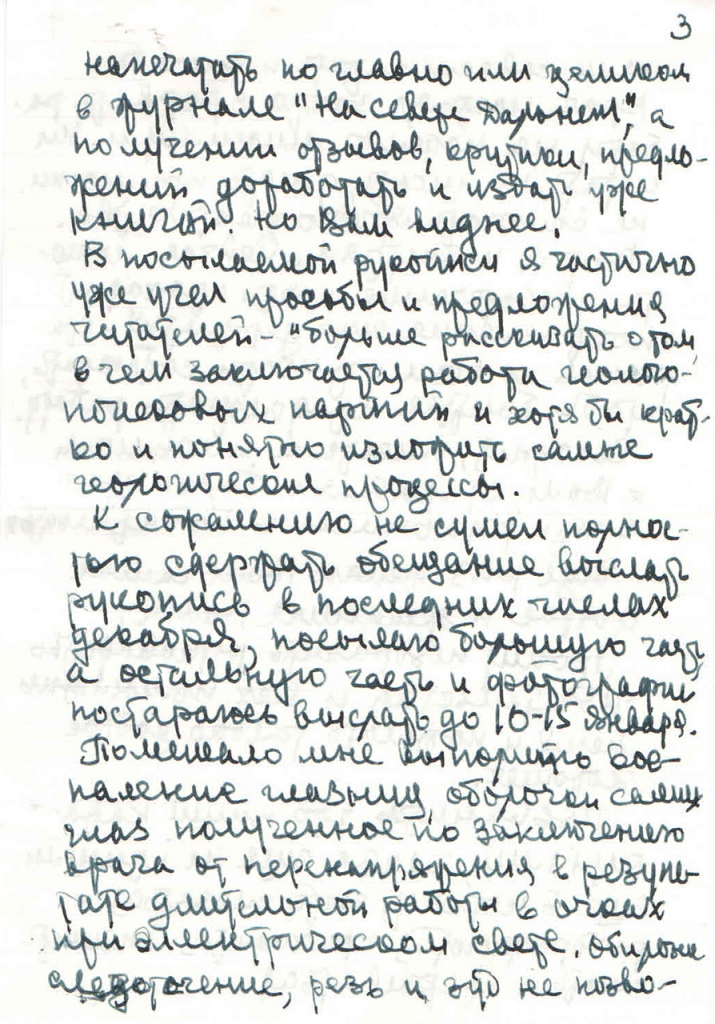 3
напечатать по главно или целиком
в журнале "На севере Дальнем", а
получении отзывов, критики, предло-
жений доработать и издать уже
книгой. Но Вам виднее.
В посылаемой рукописи я частично
уже учел просьбы и предложения
читателей "больше рассказать о том,
в чем заключается работа геолого-
поисковых партий и хотя бы крат-
ко и понятно изложить самые
геологические процессы.
К сожалению не сумел полнос-
тью сдержать обещание выслать
рукопись в последних числах
декабря, посылаю большую часть
а остальную часть и фотографии
постараюсь выслать до 10-15 января.
Помешало мне выполнить вос-
паление глазниц, оболочек самих
глаз полученное по заключению
врача от перенапряжения в резуль-
тате длительной работы в очках
при электрическом свете. Обильное
слезотечение, резь и это не позво-